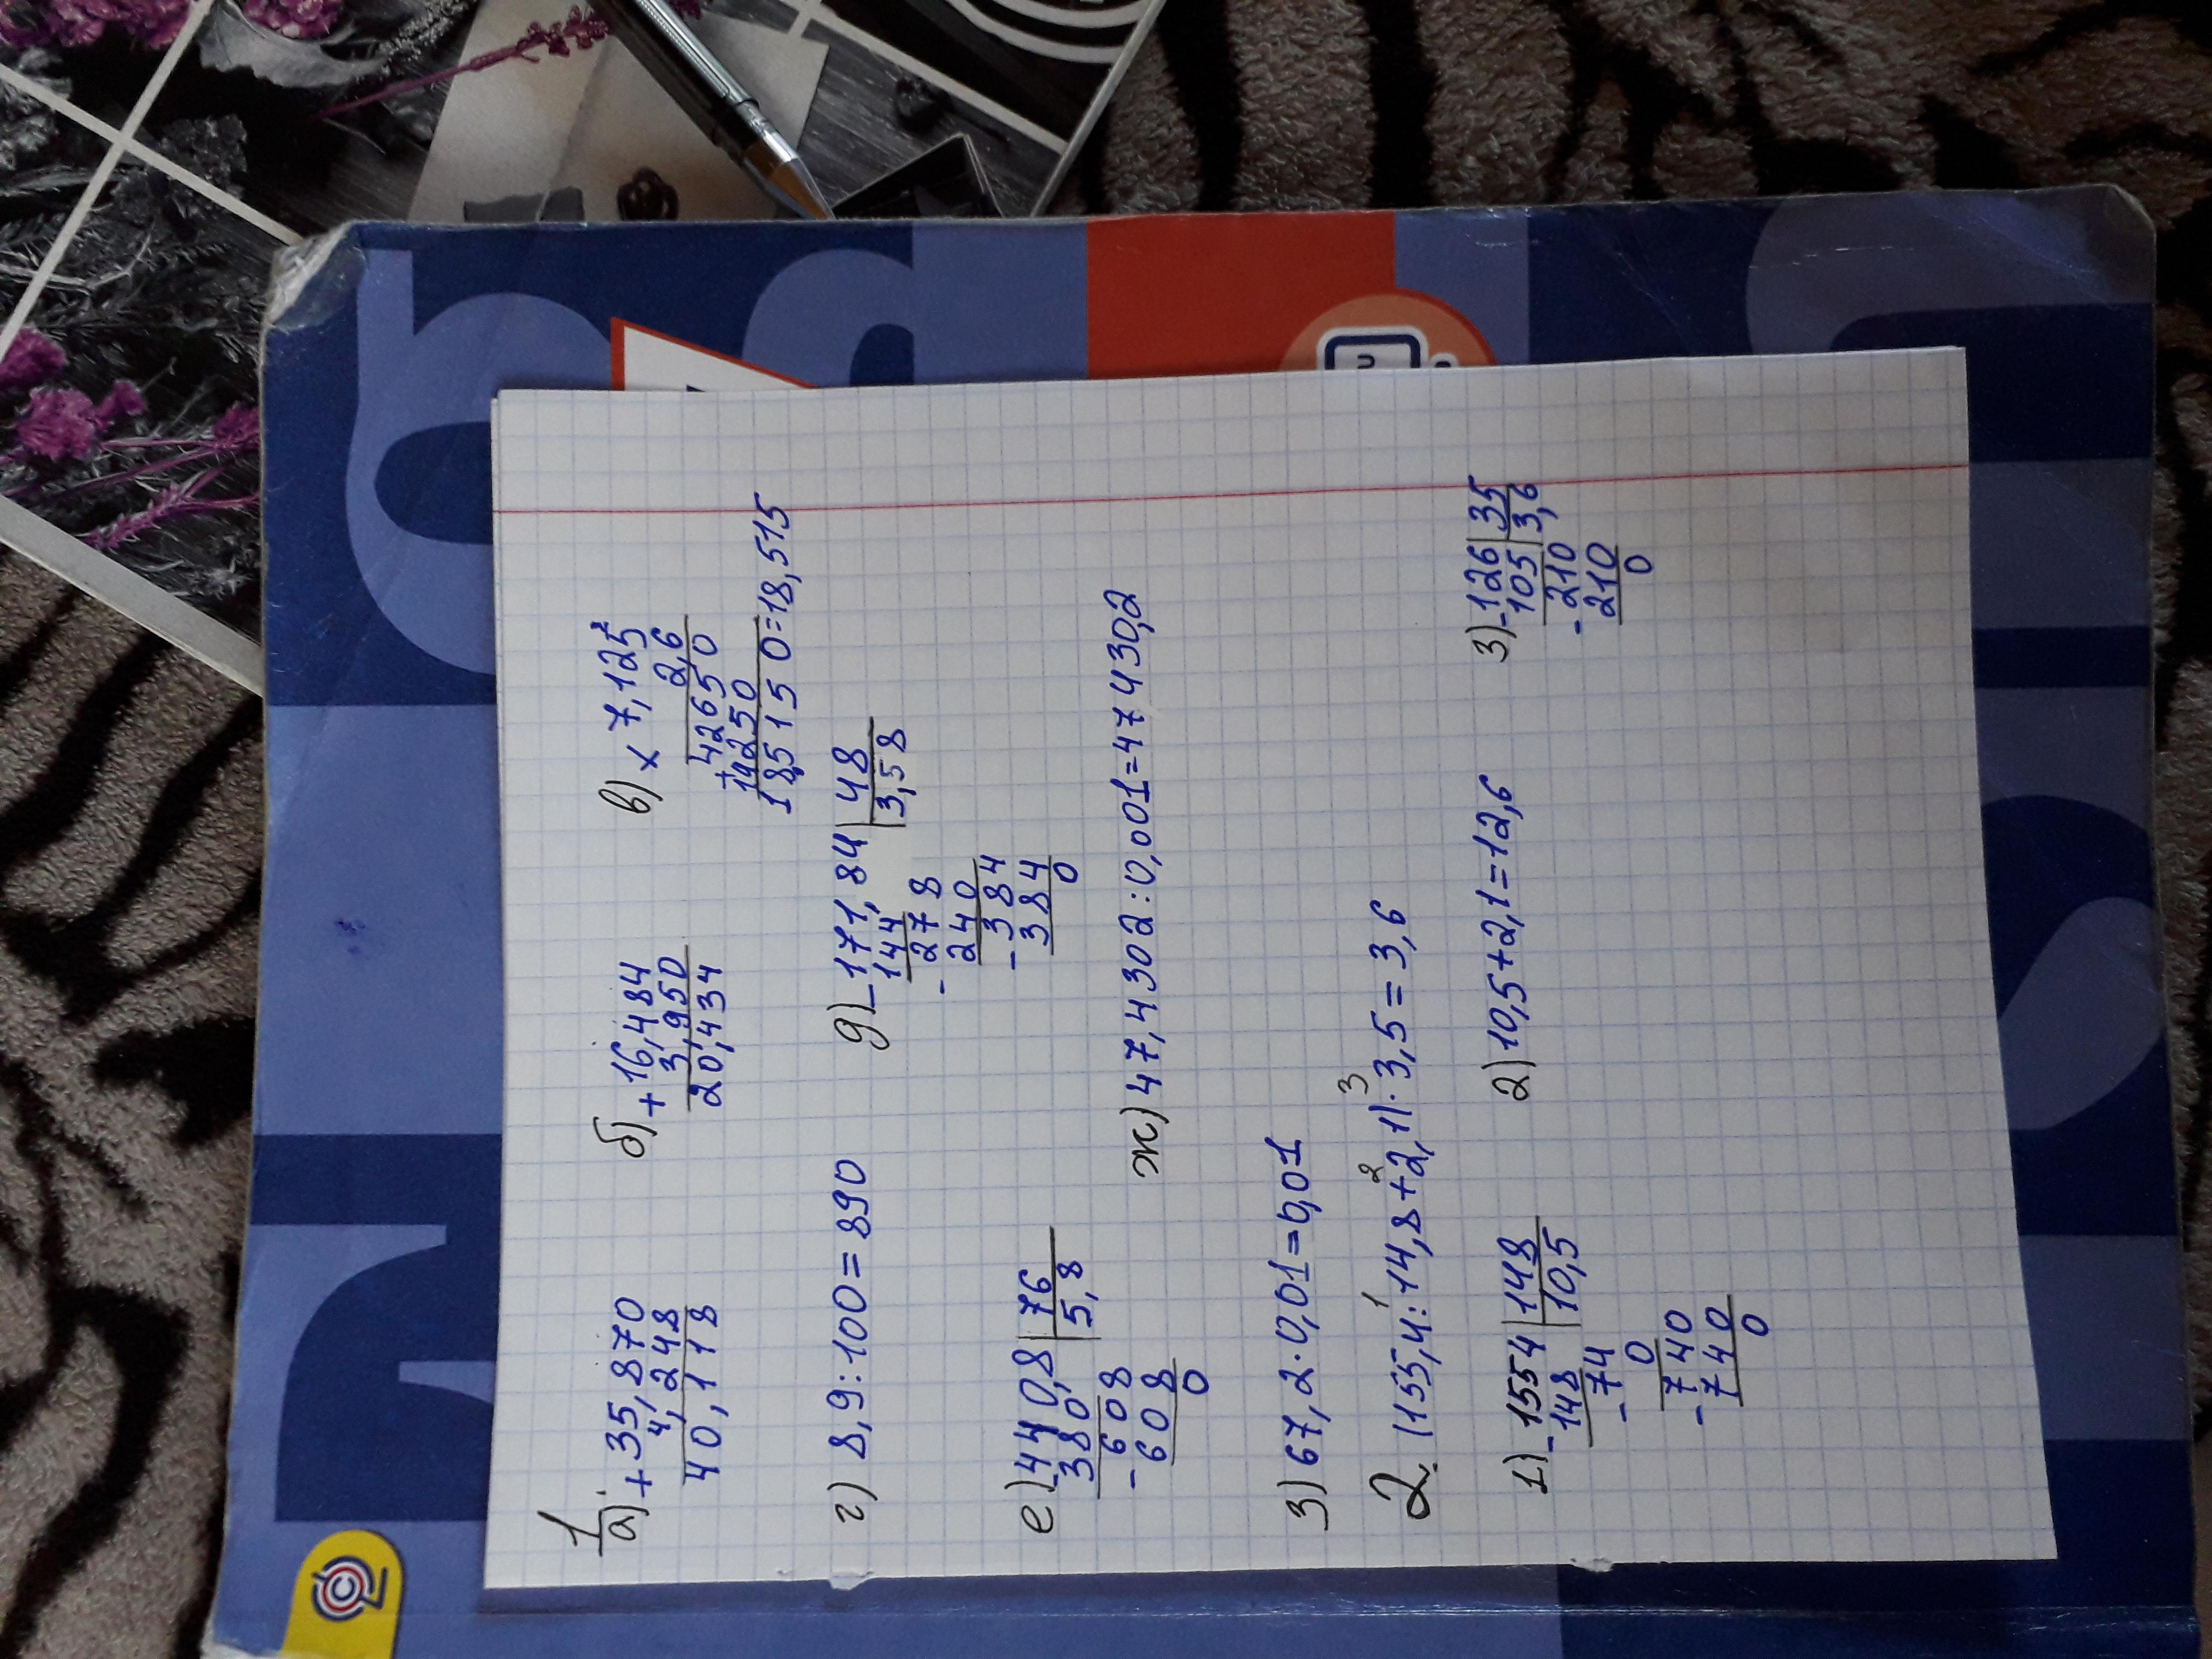 1
а) + 35,870 б) + 16,484 в) × 7,125
4,248 3,950 2,6
40,118 20,434 42650
+ 14250
185150=18,515
г) 8,9:100=890 д) - 171,84 | 48
144 3,58
- 278
240
- 384
384
0
е) - 440,8 | 76
380 5,8
- 608
608
0
ж) 47,4302:0,001=47430,2
з) 67,2·0,01=0,01
2. (155,4:14,8+2,1)·3,5=3,6
1 2 3
1) - 1554 | 148 2) 10,5+2,1=12,6 3) - 126 | 35
148 10,5 105 3,6
- 74 - 210
0 210
- 740 0
740
0